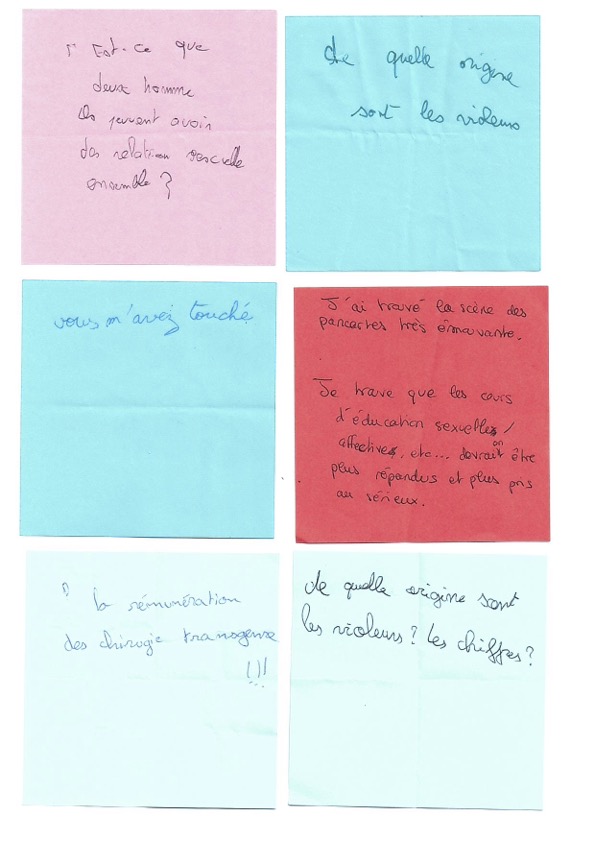 Est-ce que
deux homme
ils peuvent avoir
des relation sexcuelle
ensemble ?
de quelle origine
sont les violeurs
vous m'avez touché
J'ai trouvé la scène des
pancartes très émouvante.
Je trouve que les cours
d'éducation sexuelles/
affectives, etc... devraiont être
plus répandus et plus pris
au sérieux.
la rémunération
des chirugie transgenre
!!!
de quelle origine sont
les violeurs ? Les chiffres ?